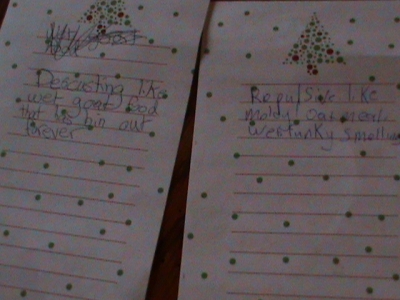 like
wet food
that has bin out
forever
Repulsive like
moldy oatmeal
wet funky smellin